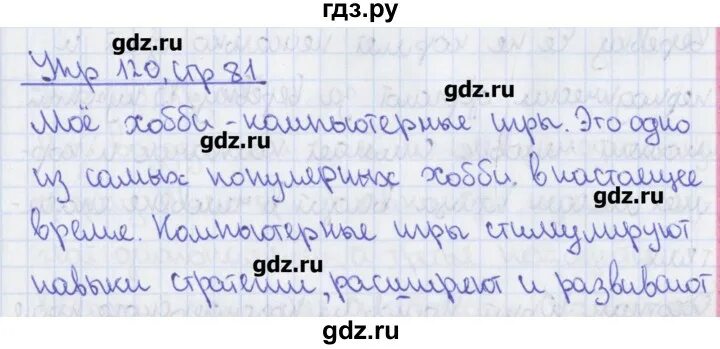 гдз.ру
gdz.ru
Упр 120, стр 81
Моё хобби - компьютерные игры. Это одно
из самых популярных хобби в настоящее
gdz.ru
gdz.ru
время. Компьютерные игры стимулируют
навыки стратегии, расширяют и развивают
gdz.ru
gdz.ru
gdz.ru